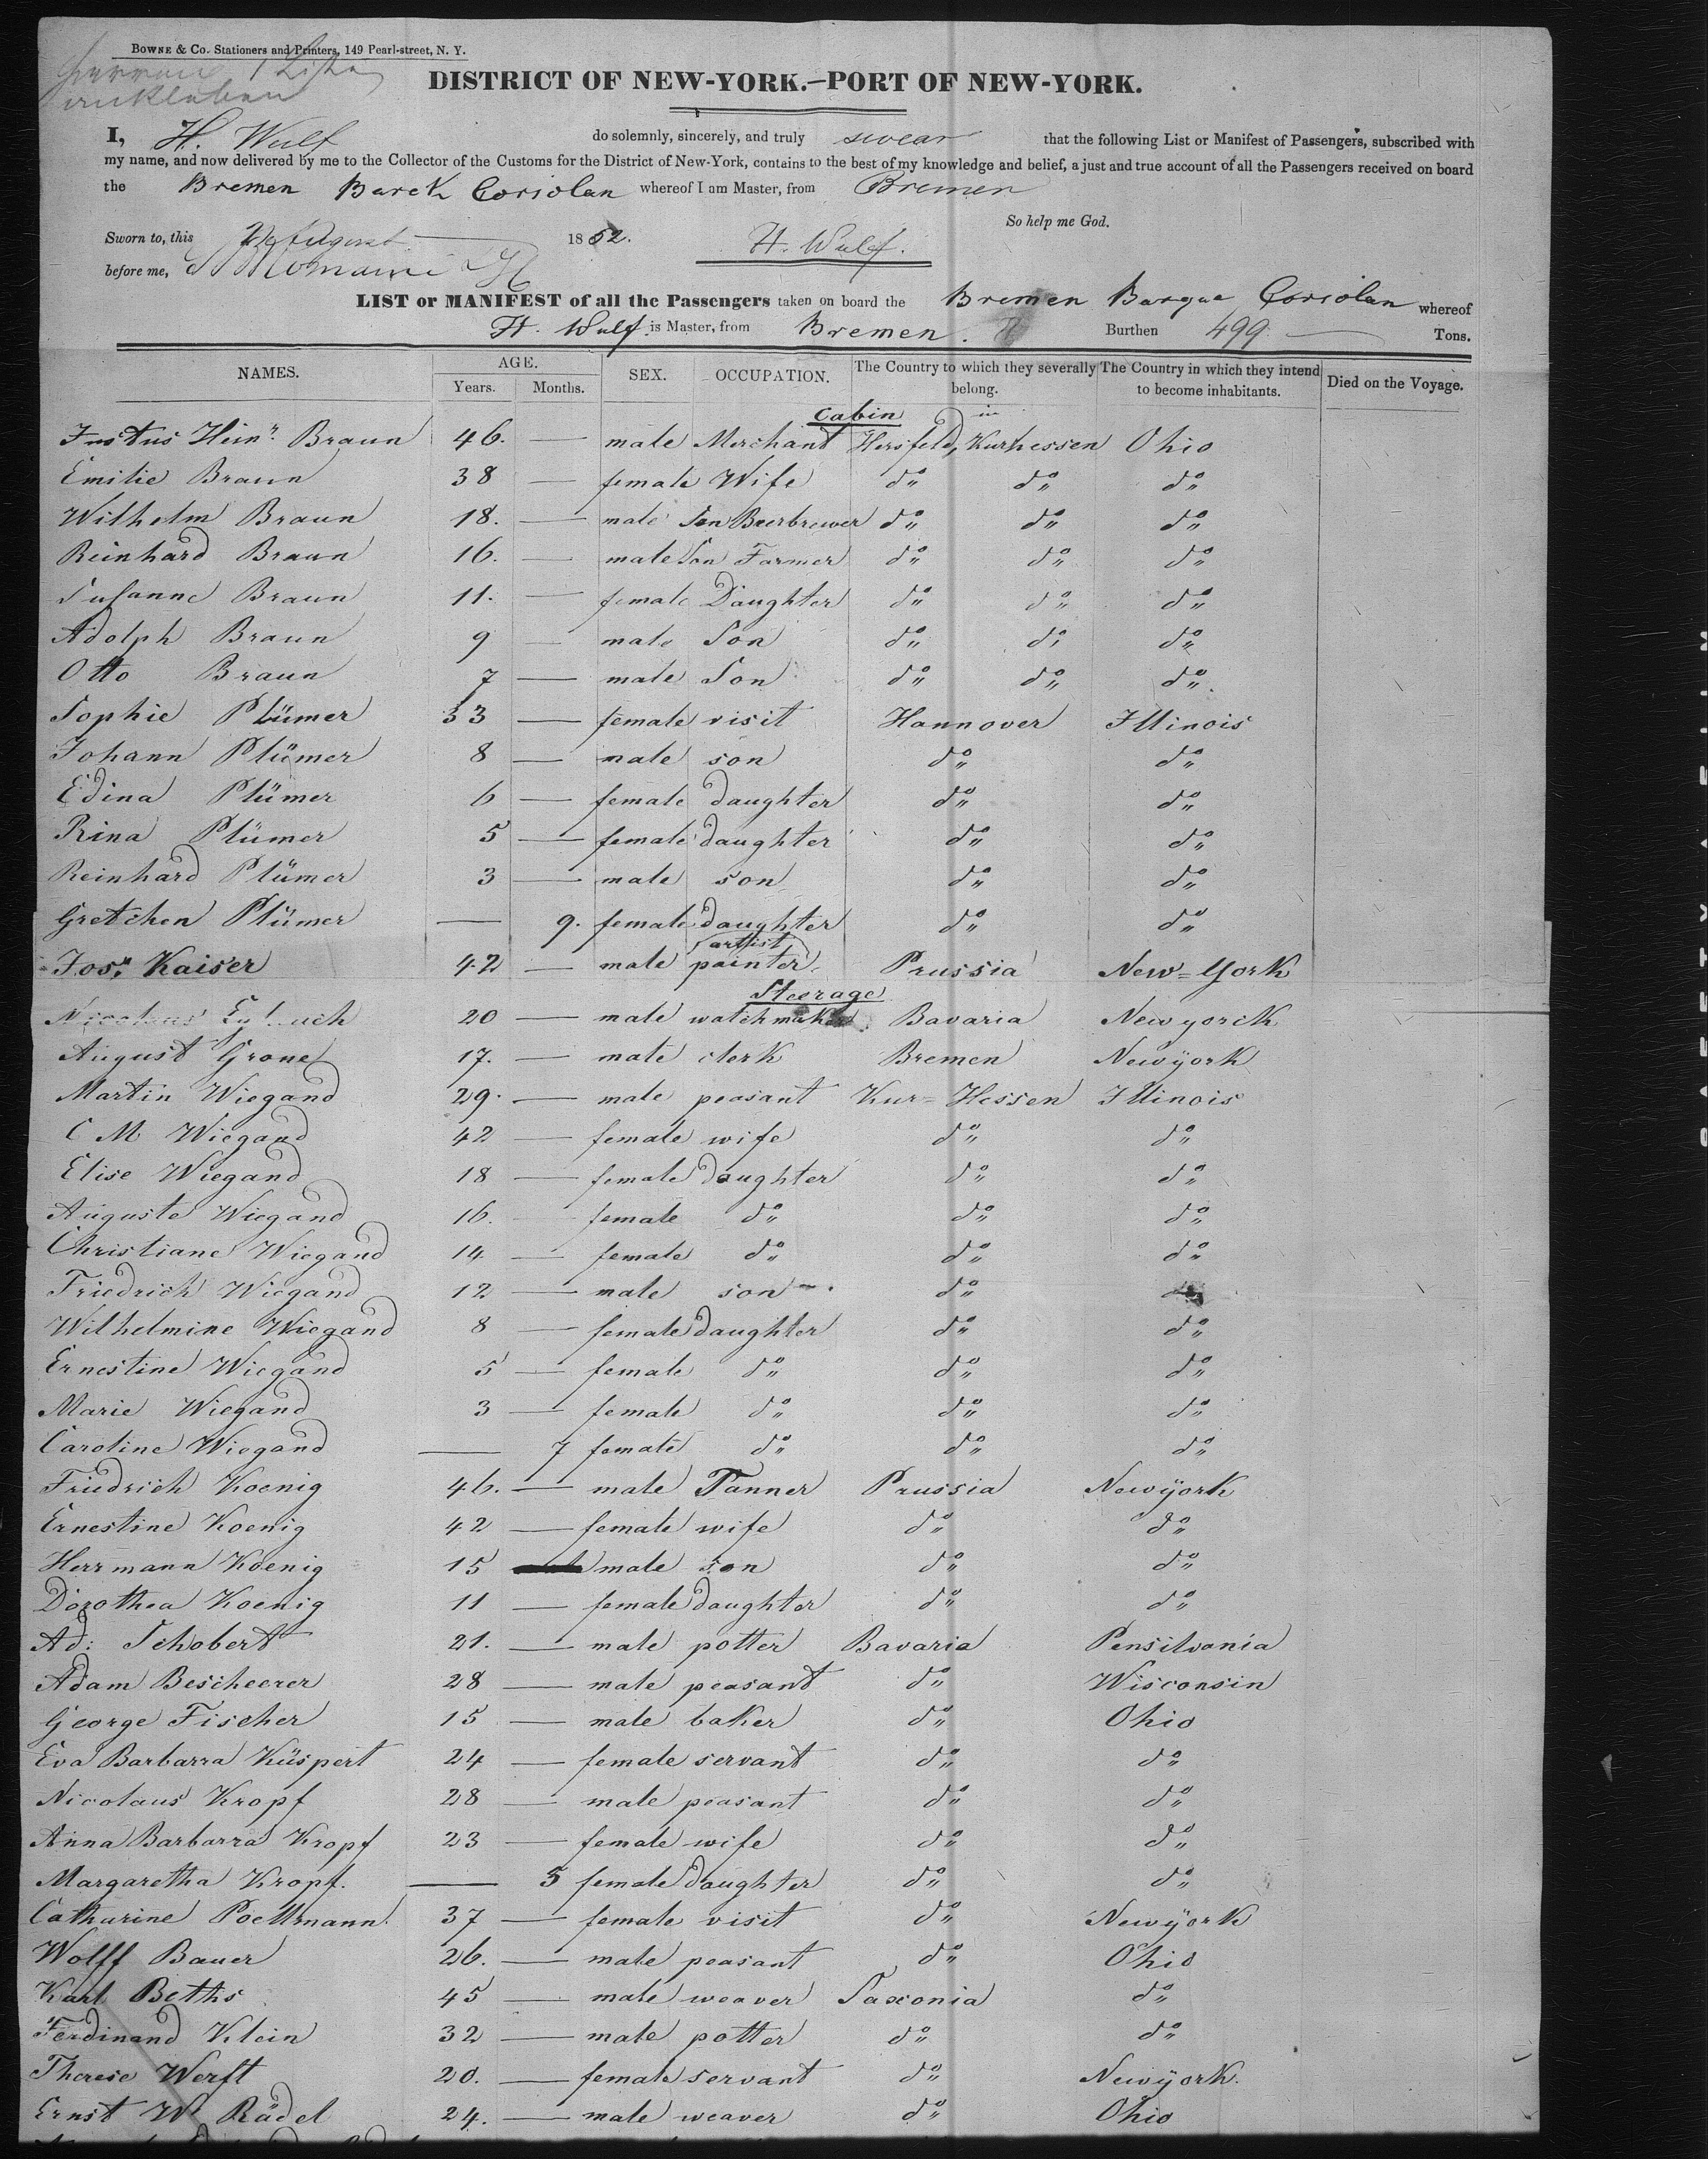 BOWNE & Co. Stationers and Printers, 149 Pearl-street, N. Y.
DISTRICT OF NEW-YORK.—PORT OF NEW-YORK.
I, H. Wulf do solemnly, sincerely, and truly swear that the following List or Manifest of Passengers, subscribed with
my name, and now delivered by me to the Collector of the Customs for the District of New-York, contains to the best of my knowledge and belief, a just and true account of all the Passengers received on board
the Bremen Barck Coriolan whereof I am Master, from Bremen
So help me God.
Sworn to, this August 1852. H. Wulf.
before me,
LIST or MANIFEST of all the Passengers taken on board the Bremen Barque Coriolan whereof
H. Wulf. is Master, from Bremen. Burthen 499 Tons.
NAMES. AGE. Years. Months. SEX. OCCUPATION. The Country to which they severally belong. The Country in which they intend to become inhabitants. Died on the Voyage.
Cabin
Justus Heinr. Braun 46. — male Merchant Hersfeld, in Kurhessen Ohio
Emilie Braun 38 — female Wife do do do
Wilhelm Braun 18. — male Son Beerbrewer do do do
Reinhard Braun 16. — male Son Farmer do do do
Susanne Braun 11. — female Daughter do do do
Adolph Braun 9 — male Son do do do
Otto Braun 7 — male Son do do do
Sophie Plümer 33 — female visit Hannover Illinois
Johann Plümer 8 — male son do do
Edina Plümer 6 — female daughter do do
Rina Plümer 5 — female daughter do do
Reinhard Plümer 3 — male son do do
Gretchen Plümer — 9. female daughter do do
Jos. Kaiser 42 — male (artist) painter Prussia New=York
Steerage
Nicolaus 20 — male watchmaker Bavaria Newyorck
August Grone 17. — male clerk Bremen Newÿork
Martin Wiegand 29. — male peasant Kur=Hessen Illinois
C M Wiegand 42 — female wife do do
Elise Wiegand 18 — female daughter do do
Auguste Wiegand 16. — female do do do
Christiane Wiegand 14 — female do do do
Friedrich Wiegand 12 — male son do
Wilhelmine Wiegand 8 — female daughter do do
Ernestine Wiegand 5 — female do do do
Marie Wiegand 3 — female do do do
Caroline Wiegand — 7 female do do do
Friedrich Koenig 46. — male Tanner Prussia Newÿork
Ernestine Koenig 42 — female wife do do
Herrmann Koenig 15 male son do do
Dorothea Koenig 11 — female daughter do do
Ad: Schobert 21. — male potter Bavaria Pensilvania
Adam Bescheerer 28 — male peasant do Wisconsin
George Fischer 15 — male baker do Ohio
Eva Barbarra Küspert 24 — female servant do do
Nicolaus Kropf 28 — male peasant do do
Anna Barbarra Kropf 23 — female wife do do
Margaretha Kropf. — 5 female daughter do do
Catharine Poellmann. 37 — female visit do Newÿork
Wolff Bauer 26. — male peasant do Ohio
Karl Beths 45 — male weaver Saxonia do
Ferdinand Klein 32 — male potter do do
Therese Werft 20. — female servant do Newÿork.
Ernst W Rädel 24. — male weaver do Ohio